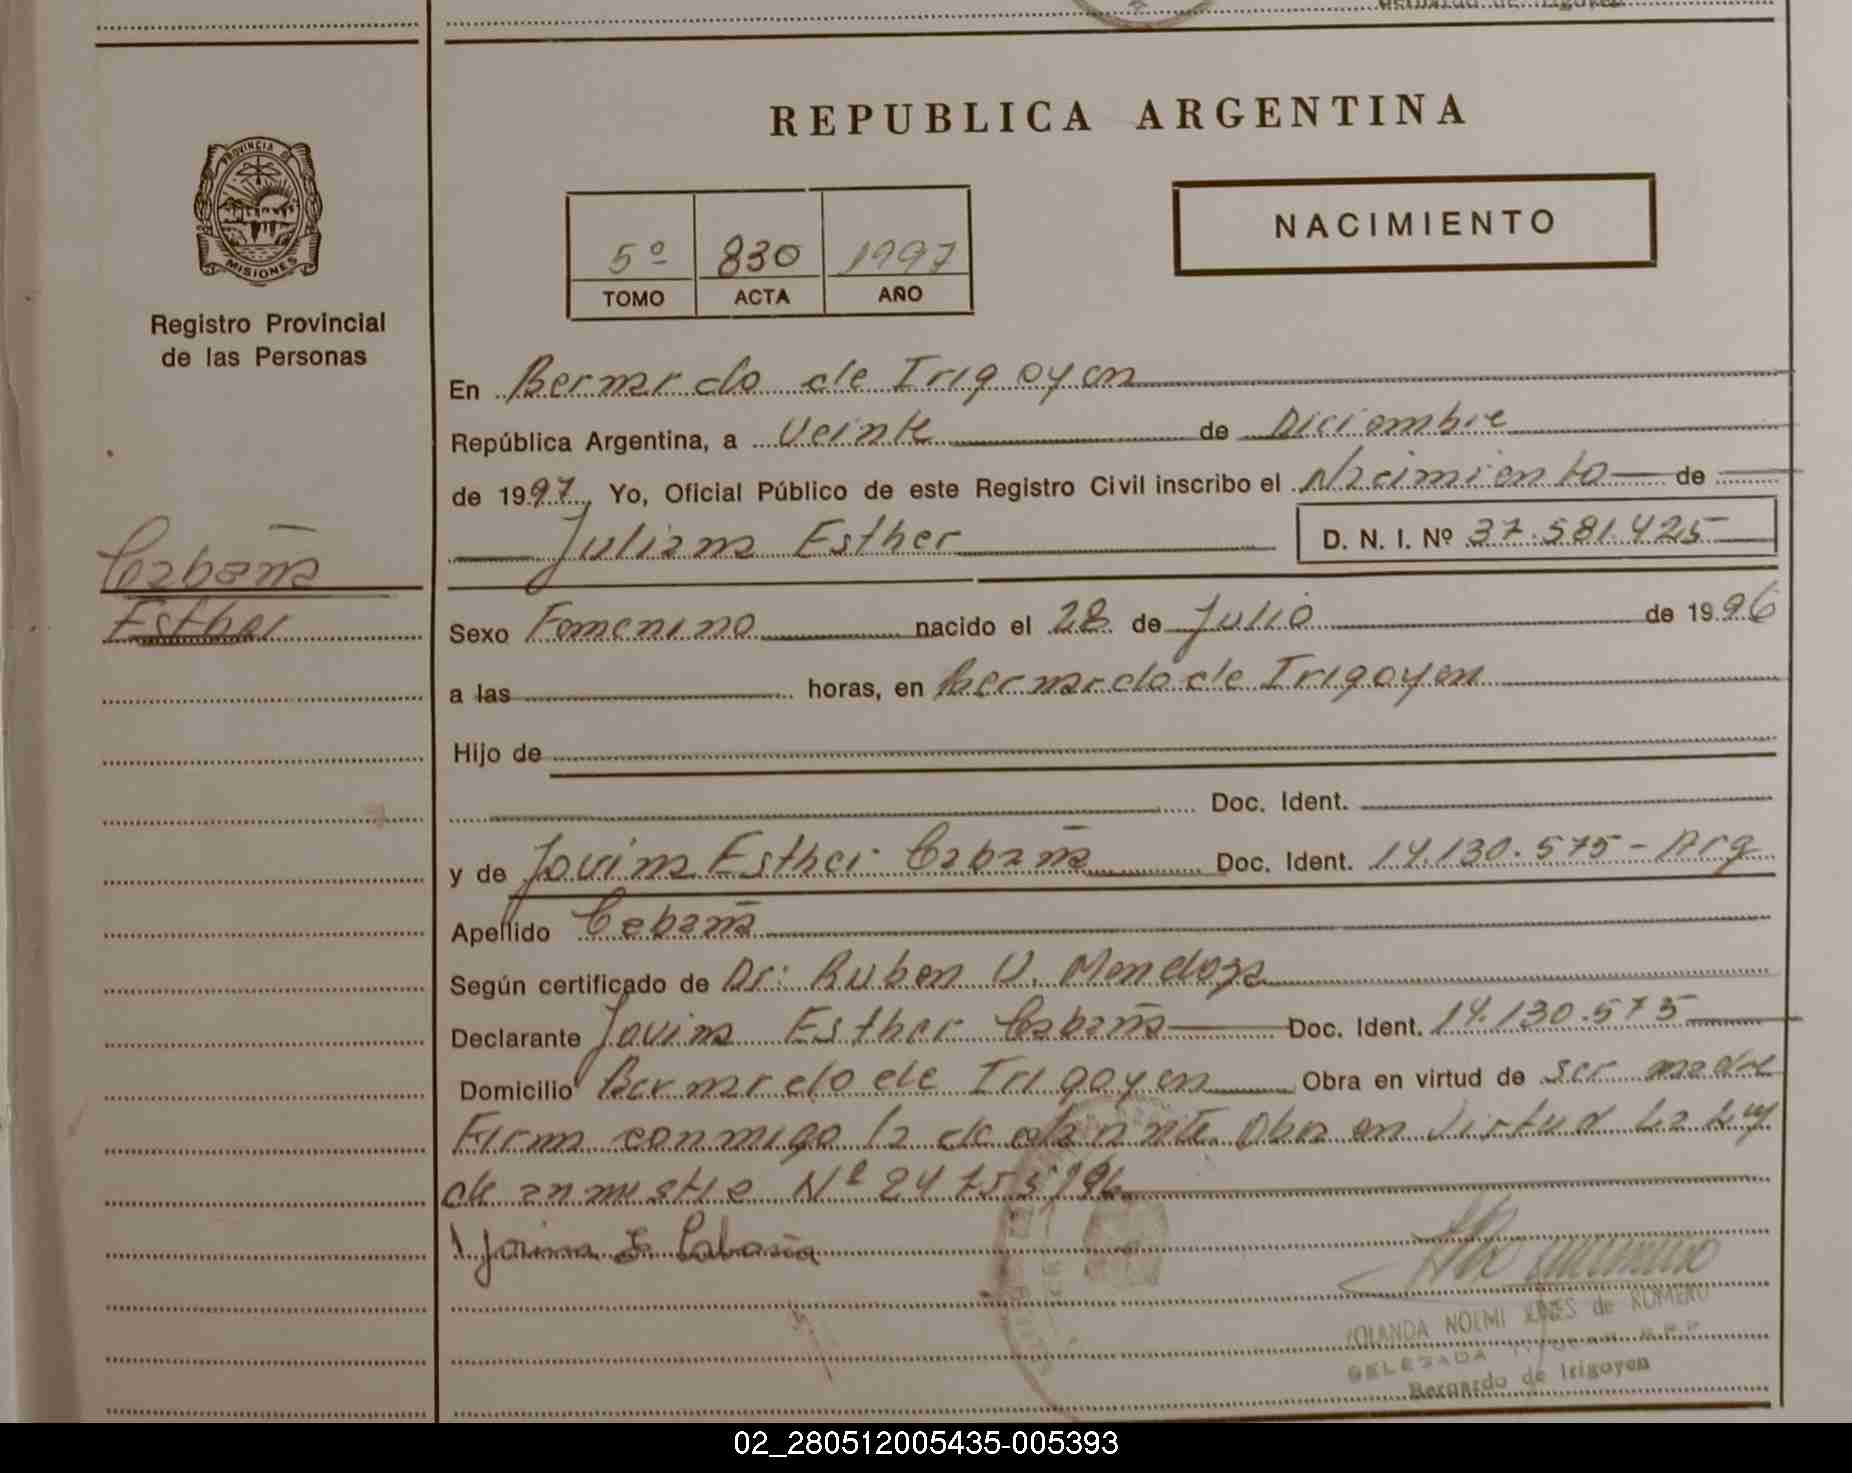 Bernardo de Irigoyen
REPUBLICA ARGENTINA
PROVINCIA DE
MISIONES
Registro Provincial
de las Personas
NACIMIENTO
5º 830 1997
TOMO ACTA AÑO
En Bernardo de Irigoyen
República Argentina, a Veinte de Diciembre
de 1997, Yo, Oficial Público de este Registro Civil inscribo el Nacimiento de
Juliana Esther D. N. I. Nº 37.581.425
Cabaña
Esther
Sexo Femenino nacido el 28 de Julio de 1996
a las horas, en Bernardo de Irigoyen
Hijo de
Doc. Ident.
y de Jovina Esther Cabaña Doc. Ident. 14.130.575 - Arg
Apellido Cabaña
Según certificado de Dr: Ruben U. Mendoza
Declarante Jovina Esther Cabaña Doc. Ident. 14.130.575
Domicilio Bernardo de Irigoyen Obra en virtud de ser madre
Firma conmigo la declarante. Obra en virtud La Ley
de amnistia Nº 24.755/96
Jovina E. Cabaña
YOLANDA NOEMI de ROMERO
DELEGADA
Bernardo de Irigoyen
02_280512005435-005393